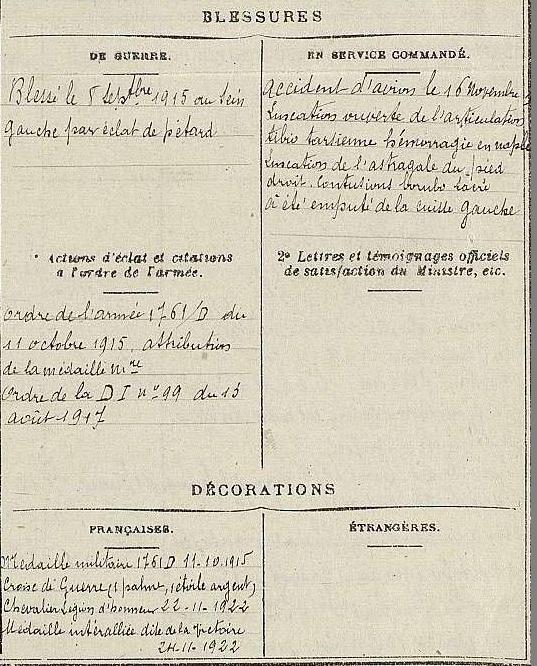 BLESSURES
DE GUERRE.
Blessé le 5 septbre 1915 au sein
gauche par éclat de pétard
EN SERVICE COMMANDÉ.
accident d'avion le 16 Novembre
Luxation ouverte de l'articulation
tibio tarsienne hémorragie en nappe
Luxation de l'astragale du pied
droit. Contusions lombo
a été emputé de la cuisse gauche
Actions d'éclat et citations
à l'ordre de l'armée.
Ordre de l'armée 1761/D du
11 octobre 1915, attribution
de la médaille mre
Ordre de la D I no 99 du 13
août 1917
2o Lettres et témoignages officiels
de satisfaction du Ministre, etc.
DÉCORATIONS
FRANÇAISES.
Médaille militaire 1761 D 11-10-1915
Croix de Guerre (1 palme, 1 étoile argent)
Chevalier Légion d'honneur 22-11-1922
Médaille intéralliée dite de la Victoire
24-11-1922
ÉTRANGÈRES.